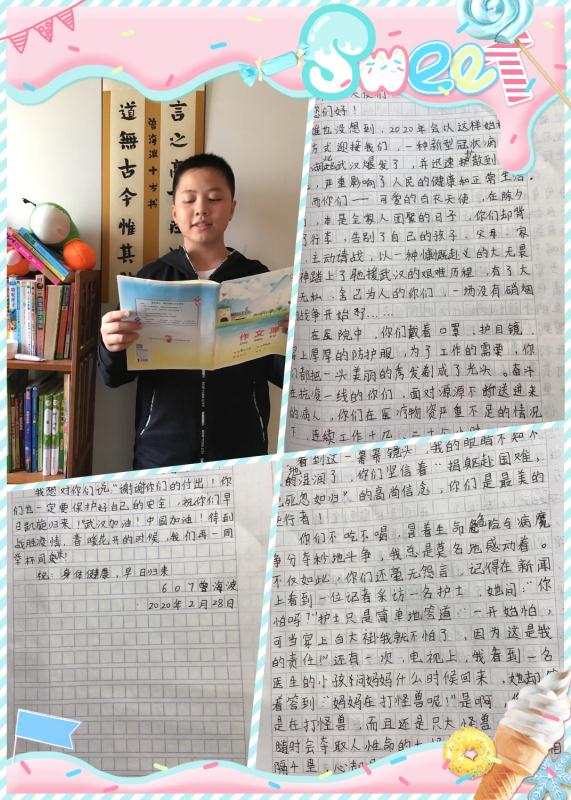 Sweet
言之高
道無古今惟其
曾海波十岁书
作文
您们好！
谁也没想到，2020年会以这样
方式迎接我们，一种新型冠状病
武汉爆发了，并迅速扩散到
，严重影响了人民的健康和正常生活。
而你们——可爱的白衣天使，在除夕
，本是全家人团聚的日子，你们却背
了行李，告别了自己的孩子、父母、家
主动请战，以一种慷慨赴义的大无畏
神踏上了驰援武汉的艰难历程，有了大
无私、舍己为人的你们，一场没有硝烟
战争开始了……
在医院中，你们戴着口罩、护目镜、
穿上厚厚的防护服，为了工作的需要，你
们都把一头美丽的秀发剃成了光头。奋斗
在抗疫一线的你们，面对源源不断送进来
的病人，你们在医疗物资严重不足的情况
，连续工作十几、二十个小时
看到这一幕幕镜头，我的眼睛不知不
的湿润了，你们坚信着“捐躯赴国难，
死忽如归”的高尚信念，你们是最美的
逆行者！
你们不吃不喝，冒着生命危险与病魔
争分夺秒地斗争，我总是莫名地感动着。
不仅如此，你们还毫无怨言，记得在新闻
上看到一位记者采访一名护士，她问：“你
怕吗？”护士只是简单地答道：“一开始怕，
可当穿上白大褂我就不怕了，因为这是我
的责任！”还有一次，电视上，我看到一名
医生的小孩问妈妈什么时候回来，她却答
着答到：“妈妈在打怪兽呢！”是啊，你
是在打怪兽，而且还是只大怪兽
随时会夺取人性命的大
隔千里，心却
我想对你们说，“谢谢你们的付出！你
们也一定要保护好自己的安全，祝你们早
日凯旋归来！”武汉加油！中国加油！待到
战胜疫情，春暖花开的时候，我们再一同
举杯同庆！
祝：身体健康，早日归来
607曾海波
2020年2月28日